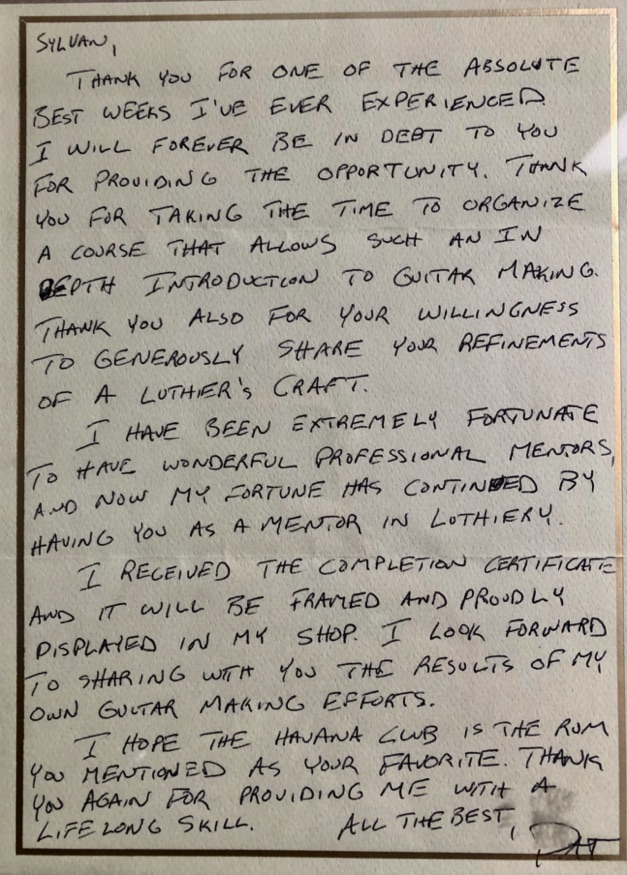 SYLVAN,
THANK YOU FOR ONE OF THE ABSOLUTE
BEST WEEKS I'VE EVER EXPERIENCED
I WILL FOREVER BE IN DEBT TO YOU
FOR PROVIDING THE OPPORTUNITY. THANK
YOU FOR TAKING THE TIME TO ORGANIZE
A COURSE THAT ALLOWS SUCH AN IN
DEPTH INTRODUCTION TO GUITAR MAKING.
THANK YOU ALSO FOR YOUR WILLINGNESS
TO GENEROUSLY SHARE YOUR REFINEMENTS
OF A LUTHIER'S CRAFT.
I HAVE BEEN EXTREMELY FORTUNATE
TO HAVE WONDERFUL PROFESSIONAL MENTORS,
AND NOW MY FORTUNE HAS CONTINUED BY
HAVING YOU AS A MENTOR IN LUTHIERY.
I RECEIVED THE COMPLETION CERTIFICATE
AND IT WILL BE FRAMED AND PROUDLY
DISPLAYED IN MY SHOP. I LOOK FORWARD
TO SHARING WITH YOU THE RESULTS OF MY
OWN GUITAR MAKING EFFORTS.
I HOPE THE HAVANA CLUB IS THE RUM
YOU MENTIONED AS YOUR FAVORITE. THANK
YOU AGAIN FOR PROVIDING ME WITH A
LIFELONG SKILL. ALL THE BEST,